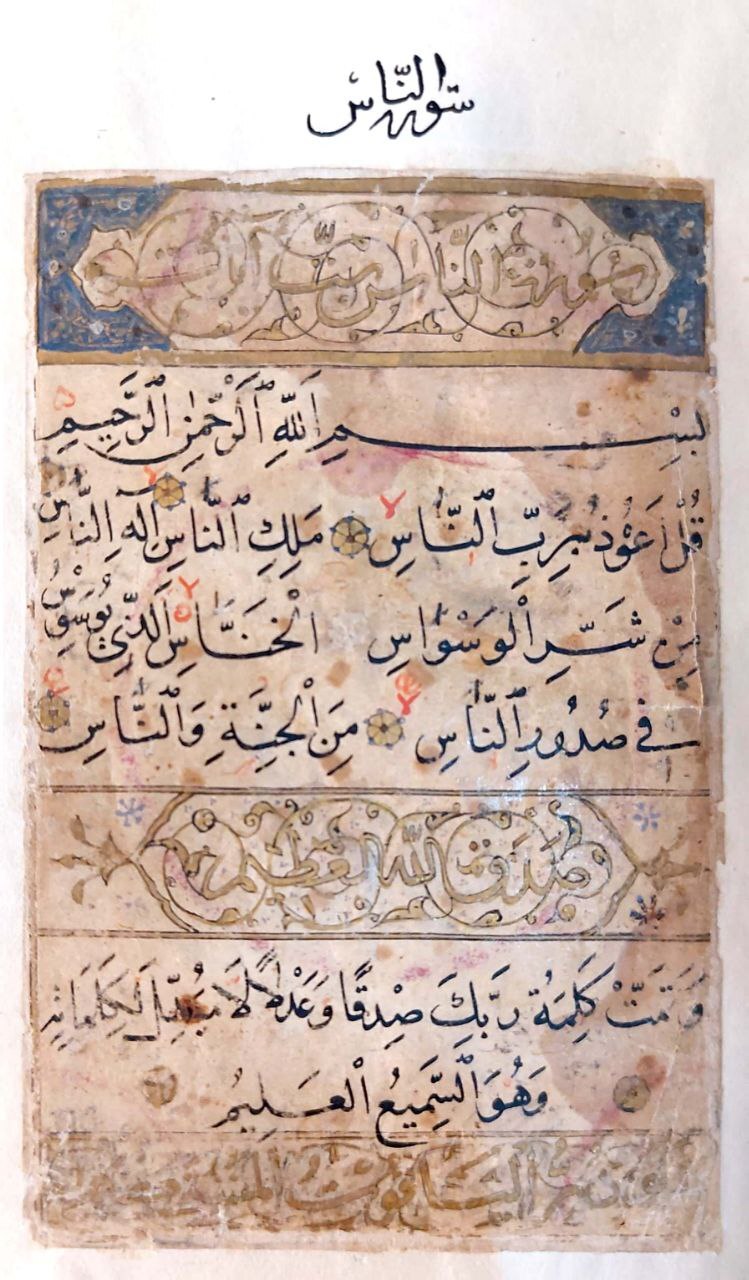 سورة الناس
سورة الناس ست آيات
بِسْمِ اللَّهِ الرَّحْمٰنِ الرَّحِيمِ
قُلْ اَعُوْذُ بِرَبِّ النَّاسِ مَلِكِ النَّاسِ اِلٰهِ النَّاسِ
مِنْ شَرِّ الْوَسْوَاسِ الْخَنَّاسِ الَّذِيْ يُوَسْوِسُ
فِي صُدُورِ النَّاسِ مِنَ الْجِنَّةِ وَالنَّاسِ
صدق الله العظيم
وَتَمَّتْ كَلِمَةُ رَبِّكَ صِدْقًا وَعَدْلًا لَا مُبَدِّلَ لِكَلِمَاتِهِ
وَهُوَ السَّمِيعُ الْعَلِيمُ